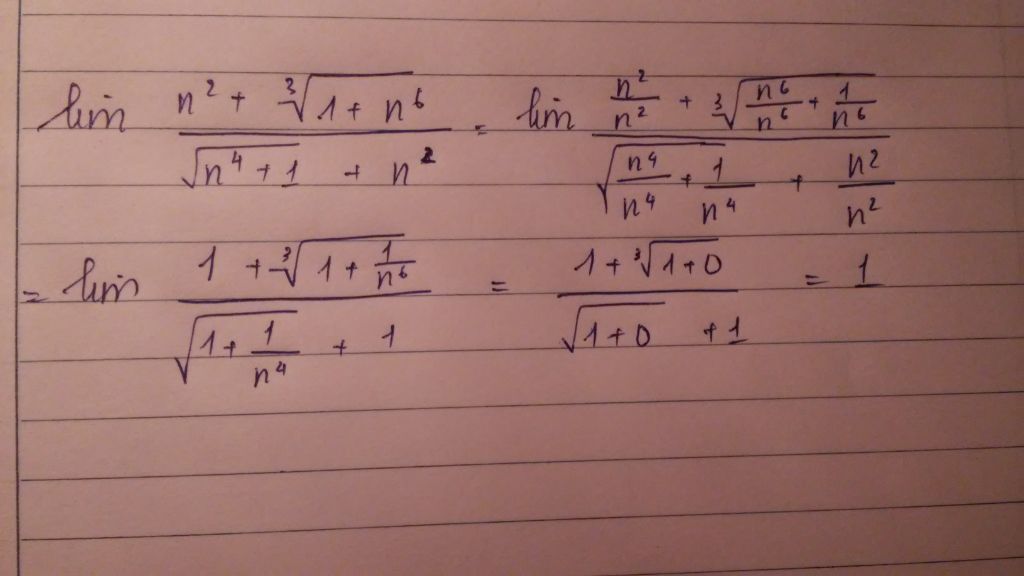 lim (n² + ∛(1 + n⁶)) / (√(n⁴ + 1) + n²) = lim (n²/n² + ∛(n⁶/n⁶ + 1/n⁶)) / (√(n⁴/n⁴ + 1/n⁴) + n²/n²)
= lim (1 + ∛(1 + 1/n⁶)) / (√(1 + 1/n⁴) + 1) = (1 + ∛(1 + 0)) / (√(1 + 0) + 1) = 1